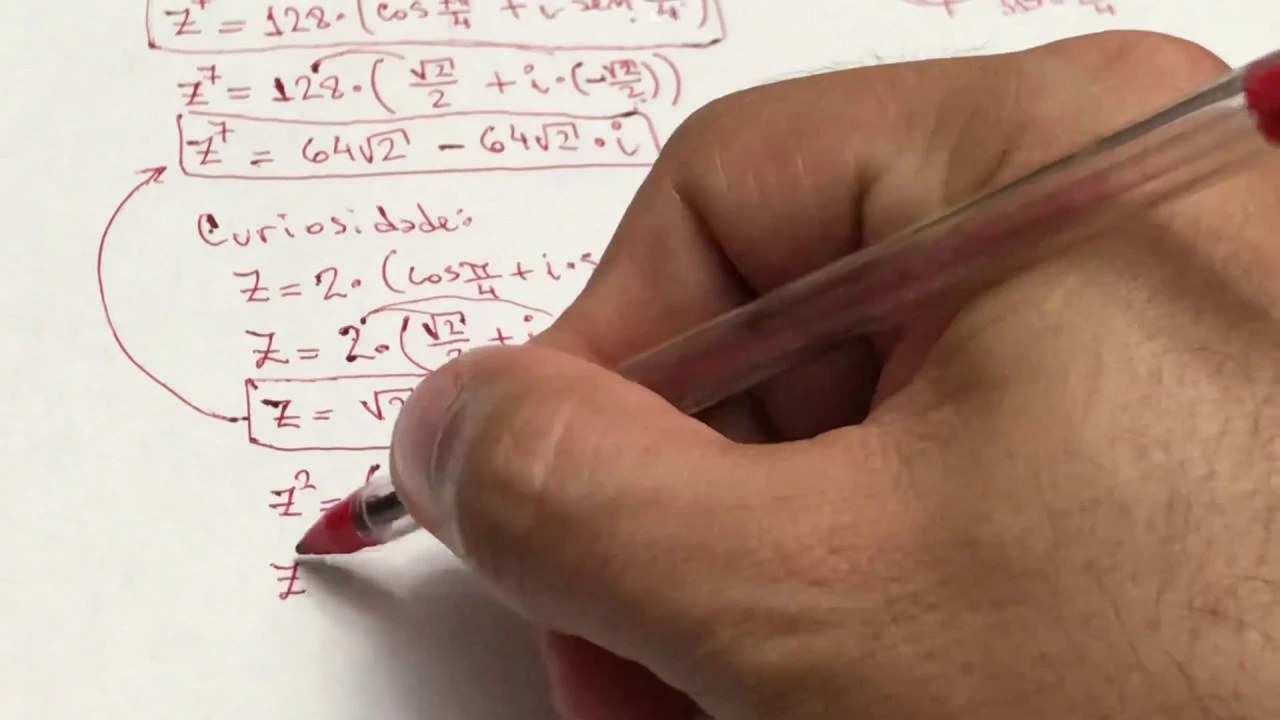 z⁷ = 128·(cos /4 + i sen /4)
z⁷ = 128·(√2/2 + i·(-√2/2))
z⁷ = 64√2 - 64√2·i
Curiosidade:
z = 2·(cos π/4 + i·s
z = 2·(√2/2 + i
z = √2
z² = (
z